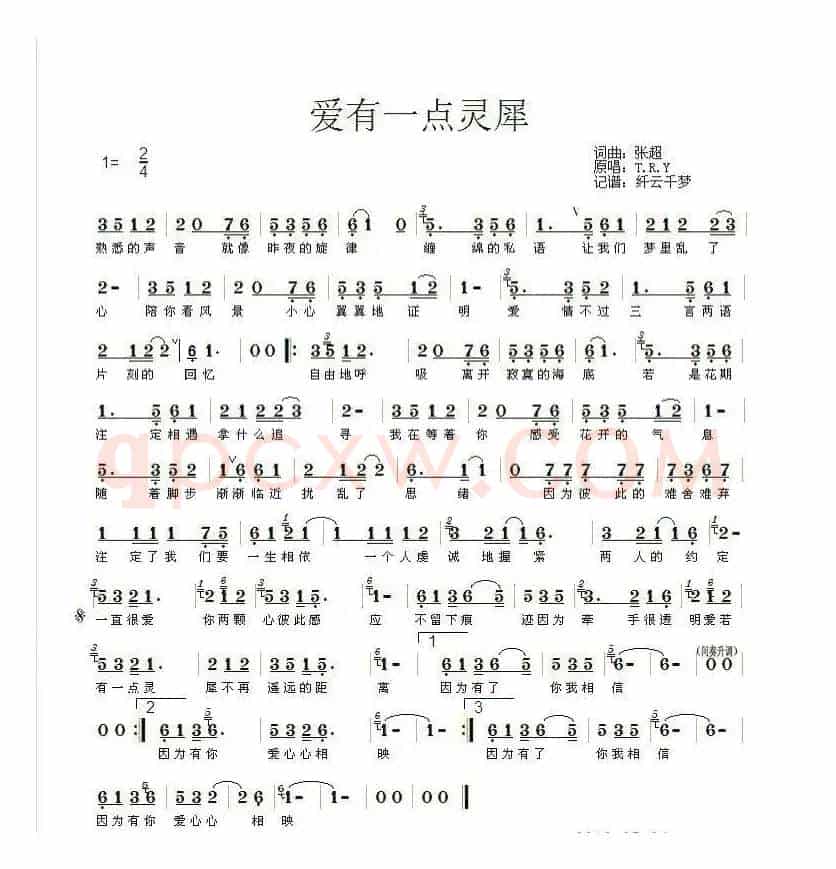 爱有一点灵犀
1= 2/4
词曲：张超
原唱：T.R.Y
记谱：纤云千梦
3 5 1 2 | 2 0 7 6 | 5 3 5 6 | 6 1 0 | 5. 3 5 | 1. 5 6 1 | 2 1 2 2 3
熟悉的声 音 就像 昨夜的旋 律 缠 绵的私 语 让我们 梦里乱 了
2 - | 3 5 1 2 | 2 0 7 6 | 5 3 5 5 1 2 | 2 - | 5. 3 5 2 | 1. 5 6 1
心 陪你看风 景 小心 翼翼地 证 明 爱 情不过 三 言两语
2 1 2 2 6 1. | 0 0 :| 3 5 1 2. | 2 0 7 6 | 5 3 5 6 | 6 1. | 5. 3 5 2
片 刻的 回忆 自由地呼 吸 离开 寂寞的海 底 若 是花期
1. 5 6 1 | 2 1 2 2 3 | 2 - | 3 5 1 2 | 2 0 7 6 | 5 3 5 5 1 2 | 2 -
注 定相遇 拿什么追 寻 我在等着 你 感受 花开的 气 息
5. 3 5 2 | 1 6 6 1 | 2 1 2 2 | 6. 1 | 0 7 7 7 | 0 7 7 7 | 7 3 6 7
随 着脚步 渐渐临近 扰 乱了 思 绪 因为彼 此的 难舍难弃
1 1 1 1 | 1 7 5 | 6 1 2 1 | 1 1 1 2 | 3 2 1 1 6. | 3 2 2 1 6. | 2 -
注 定了我 们要 一生相依 一个人虔 诚 地握 紧 两 人的 约定
5 3 2 1. | 2 1 2 2 | 5 3 1 5. | 1 - | 6 1 3 6 5 | 5 3 5 | 3. 2 1 2 | 2 1 2
一直很爱 你两颗 心彼此感 应 不留下痕 迹因为 牵 手很透 明爱若
1
5 3 2 1. | 2 1 2 2 | 3 5 1 5. | 1 - | 6 1 3 6 5 | 5 3 5 | 6 - | 6 - | (间奏升调) 0 0
有一点灵 犀不再 遥远的距 离 因为有了 你我相信
2 3
0 0 :| 6 1 3 6. | 5 3 2 6 | 1 - | 1 - :| 6 1 3 6 5 | 5 3 5 | 6 - | 6 -
因为有你 爱心心相 映 因为有了 你我相信
6 1 3 6 | 5 3 2 | 2 6 | 1 - | 1 - | 0 0 | 0 0
因为有你 爱心心 相映
qpcxw.COM